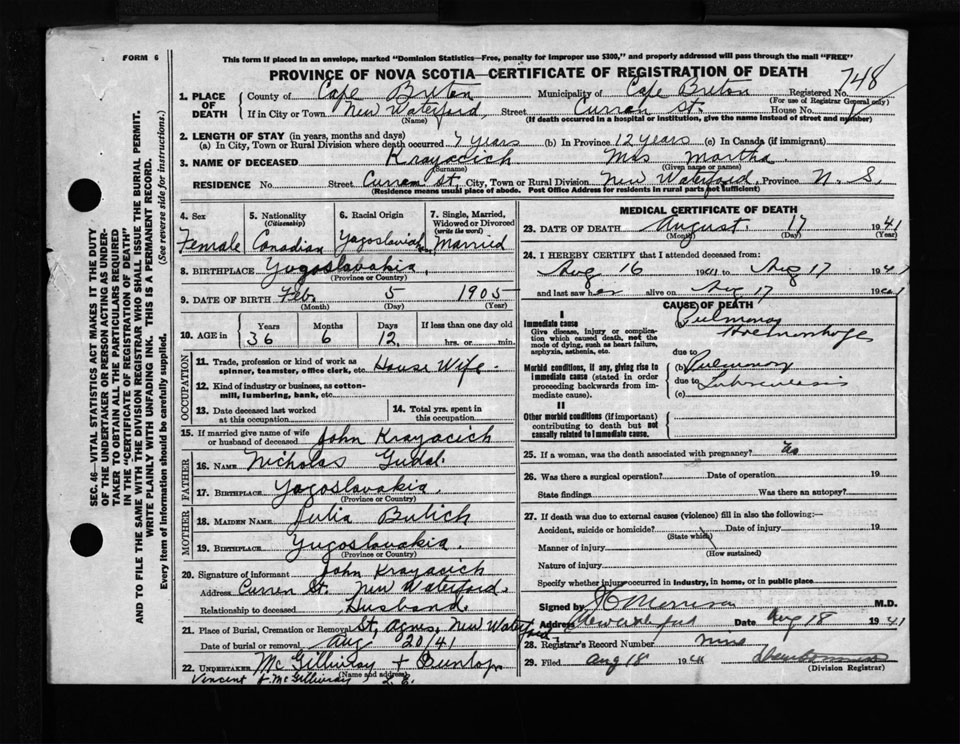 FORM 6
This form if placed in an envelope, marked "Dominion Statistics—Free, penalty for improper use $300," and properly addressed will pass through the mail "FREE"
PROVINCE OF NOVA SCOTIA—CERTIFICATE OF REGISTRATION OF DEATH
748
1. PLACE OF DEATH
County of Cape Breton Municipality of Cape Breton Registered No.
(For use of Registrar General only)
If in City or Town New Waterford, Street Curran St. House No.
(Name) (If death occurred in a hospital or institution, give the name instead of street and number)
2. LENGTH OF STAY (in years, months and days)
(a) In City, Town or Rural Division where death occurred 7 years (b) In Province 12 years (c) In Canada (if immigrant)
3. NAME OF DECEASED Krayacich Mrs Martha
(Surname) (Given name or names)
RESIDENCE No. Street Curran St. City, Town or Rural Division New Waterford, Province N. S.
(Residence means usual place of abode. Post Office Address for residents in rural parts not sufficient)
4. Sex
Female
5. Nationality (Citizenship)
Canadian
6. Racial Origin
Yagoslavian
7. Single, Married, Widowed or Divorced (write the word)
Married
8. BIRTHPLACE Yugoslavakia,
(Province or Country)
9. DATE OF BIRTH Feb. 5 1905
(Month) (Day) (Year)
10. AGE in
Years Months Days If less than one day old
36 6 12 hrs. or min.
OCCUPATION
11. Trade, profession or kind of work as spinner, teamster, office clerk, etc. House Wife
12. Kind of industry or business, as cotton-mill, lumbering, bank, etc.
13. Date deceased last worked at this occupation
14. Total yrs. spent in this occupation
15. If married give name of wife or husband of deceased John Krayacich
FATHER
16. NAME Nicholas Gudal
17. BIRTHPLACE Yagoslavakia,
(Province or Country)
MOTHER
18. MAIDEN NAME Julia Bulich
19. BIRTHPLACE Yugoslavakia.
(Province or Country)
20. Signature of informant John Krayacich
Address Curren St. New Waterford.
Relationship to deceased Husband.
21. Place of Burial, Cremation or Removal St. Agnes, New Waterford
Date of burial or removal Aug 20/41
22. UNDERTAKER McGillivray + Dunlop
(Name and address)
Vincent J. McGillivray
MEDICAL CERTIFICATE OF DEATH
23. DATE OF DEATH August. 17 1941
(Month) (Day) (Year)
24. I HEREBY CERTIFY that I attended deceased from:
Aug 16 1941 to Aug 17 1941
and last saw her alive on Aug 17 1941
CAUSE OF DEATH
I
Immediate cause
Give disease, injury or complication which caused death, not the mode of dying, such as heart failure, asphyxia, asthenia, etc.
Pulmonary
Hremorrhage
due to
Morbid conditions, if any, giving rise to immediate cause (stated in order proceeding backwards from immediate cause).
(b) Pulmonary
due to Tuberculosis
(c)
II
Other morbid conditions (if important) contributing to death but not causally related to immediate cause.
25. If a woman, was the death associated with pregnancy? No
26. Was there a surgical operation? Date of operation 19
State findings Was there an autopsy?
27. If death was due to external causes (violence) fill in also the following:—
Accident, suicide or homicide? Date of injury 19
(State which)
Manner of injury
(How sustained)
Nature of injury
Specify whether injury occurred in industry, in home, or in public place
Signed by M.D.
Address New Waterford Date Aug 18 1941
28. Registrar's Record Number nine
29. Filed Aug 18 1941
(Division Registrar)
SEC. 46—VITAL STATISTICS ACT MAKES IT THE DUTY
OF THE UNDERTAKER OR PERSON ACTING AS UNDER-
TAKER TO OBTAIN ALL THE PARTICULARS REQUIRED
IN THE "CERTIFICATE OF REGISTRATION OF DEATH"
AND TO FILE THE SAME WITH THE DIVISION REGISTRAR WHO SHALL ISSUE THE BURIAL PERMIT.
WRITE PLAINLY WITH UNFADING INK. THIS IS A PERMANENT RECORD.
Every item of information should be carefully supplied. (See reverse side for instructions.)